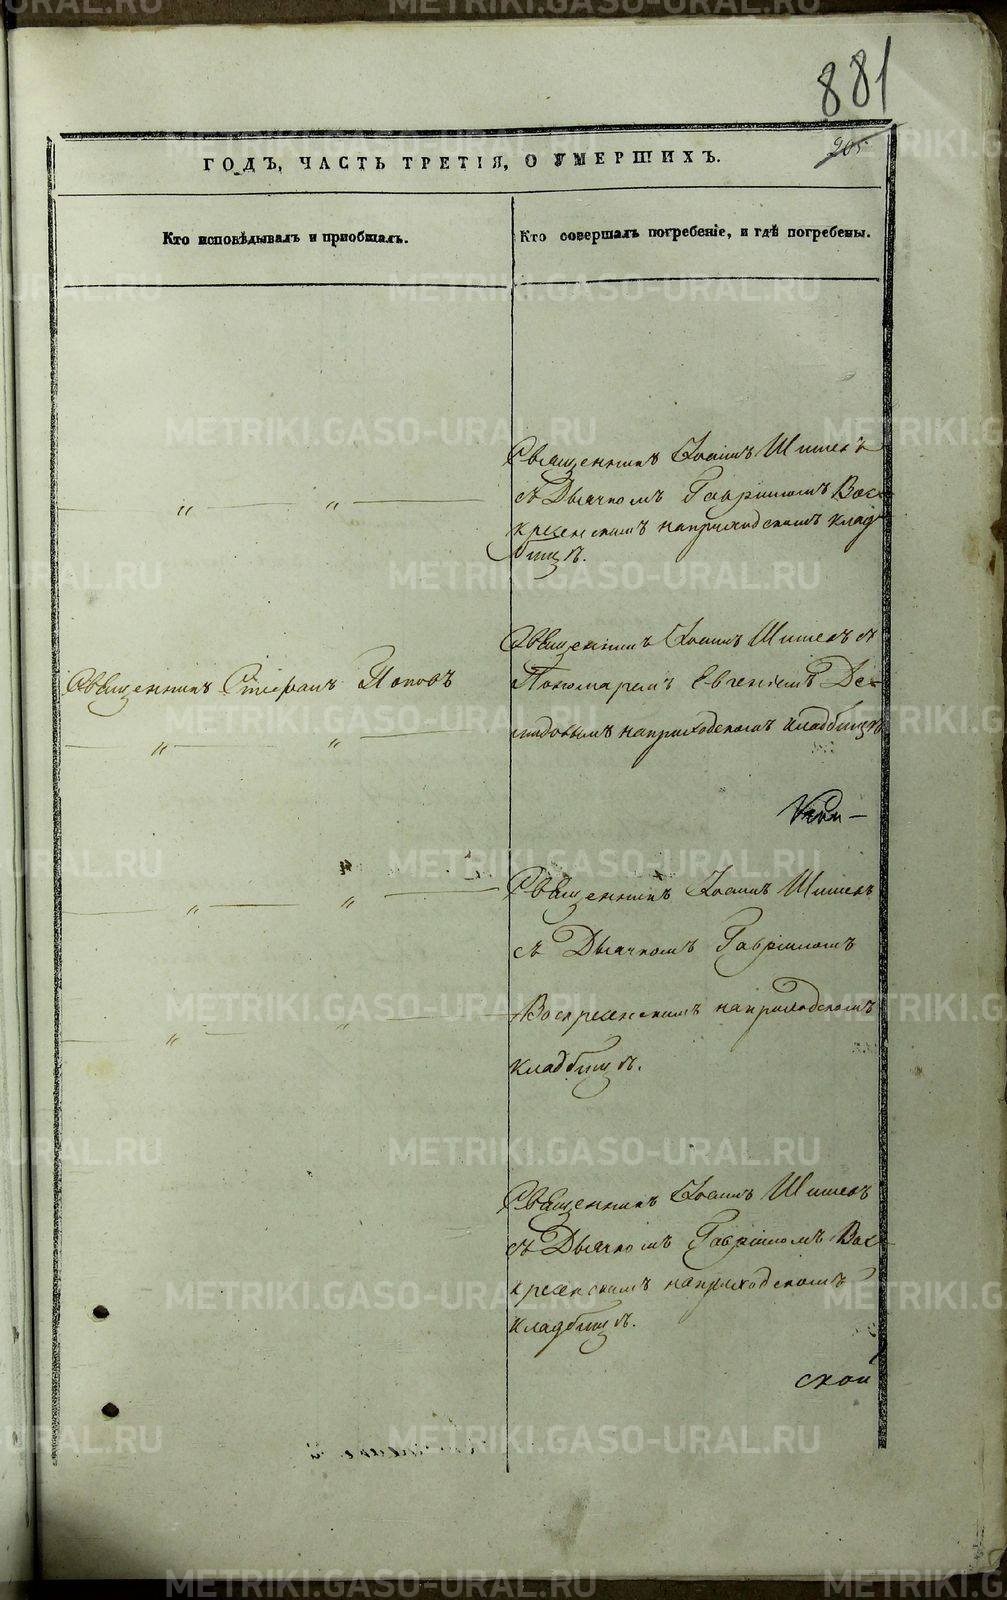 881
205
ГОДЪ, ЧАСТЬ ТРЕТІЯ, О УМЕРШИХЪ.
Кто исповѣдывалъ и пріобщалъ.
Кто совершалъ погребеніе, и гдѣ погребены.
Священникъ Іоаннъ Шишевъ
съ Дьячкомъ Гавріиломъ Вос-
кресенскимъ наприходскомъ клад-
бищѣ.
Священникъ Стефанъ Поповъ
Священникъ Іоаннъ Шишевъ съ
Пономаремъ Евгеніемъ Де-
мидовымъ наприходскомъ кладбищѣ
Священникъ Іоаннъ Шишевъ
съ Дьячкомъ Гавріиломъ
Воскресенскимъ наприходскомъ
кладбищѣ.
Священникъ Іоаннъ Шишевъ
съ Дьячкомъ Гавріиломъ Вос-
кресенскимъ наприходскомъ
кладбищѣ.
ской
METRIKI.GASO-URAL.RU